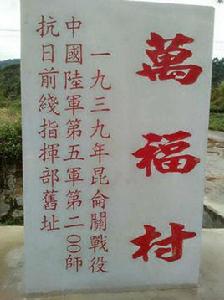 萬福村
一九三九年昆侖關戰役
中國陸軍第五軍第二〇〇師
抗日前綫指揮部舊址